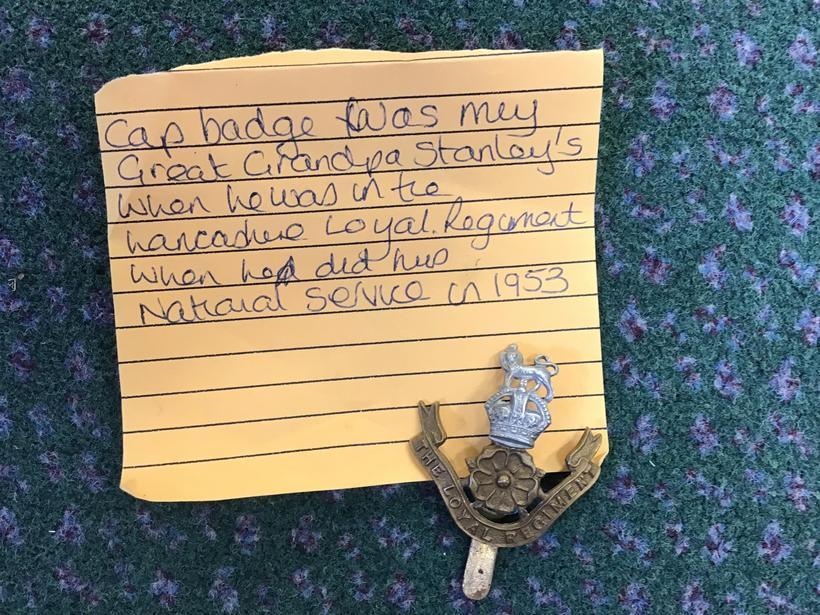 Cap badge Was my
Great Grandpa Stanley's
when he was in the
Lancashire Loyal Regiment
when he did his
National Service in 1953
THE LOYAL REGIMENT